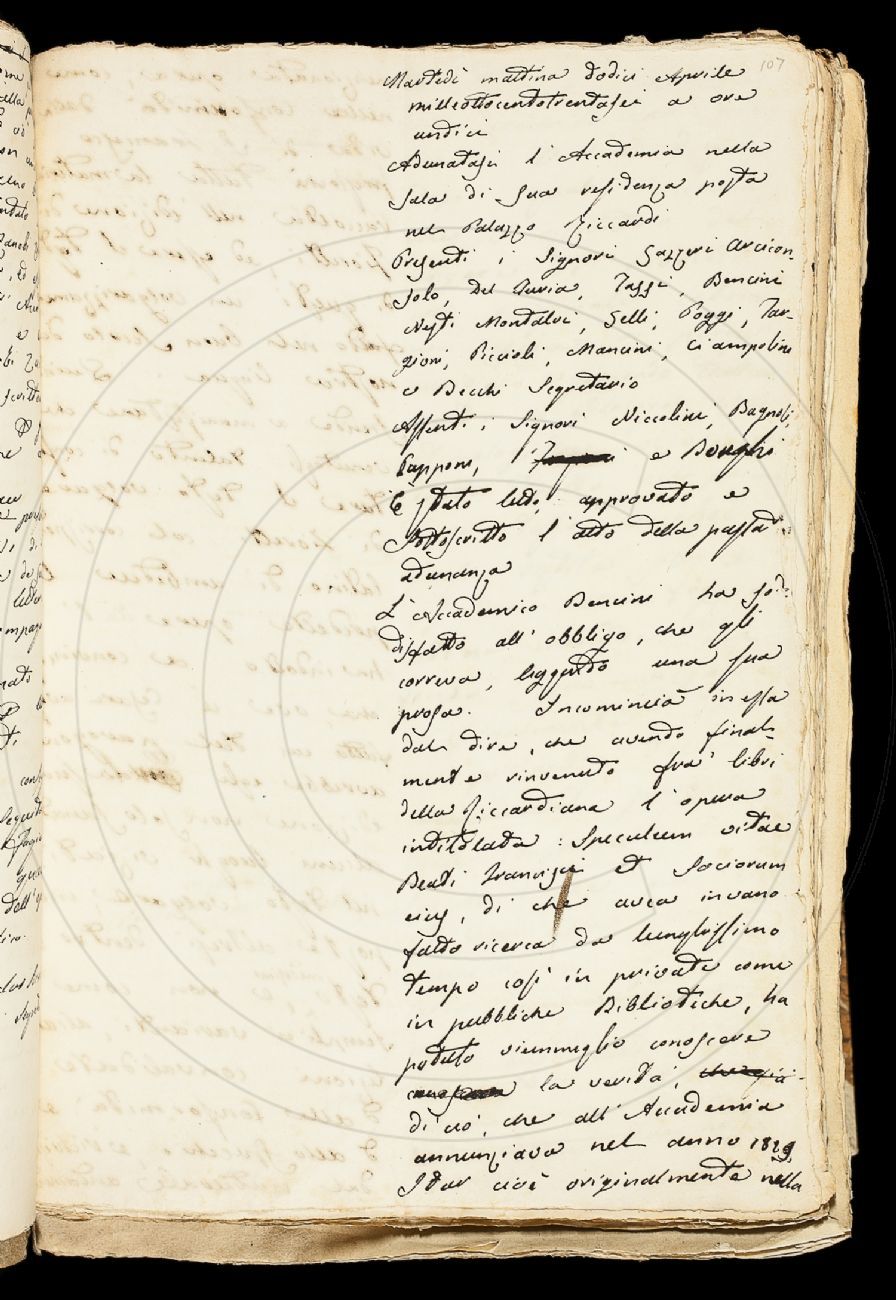 107
Martedì mattina dodici Aprile
milleottocentotrentasei a ore
undici
Adunatasi l'Accademia nella
sala di sua residenza posta
nel Palazzo Riccardi
Presenti i Signori Gazzeri Arcicon-
solo, Del Furia, Tassi, Bencini
Nesti Montalvi, Gelli, Poggi, Tar-
gioni, Piccioli, Mancini, Ciampolini
e Becchi Segretario
Assenti i Signori Niccolini, Bagnoli,
Capponi, e Borghi
È stato letto, approvato e
sottoscritto l'atto della passata
adunanza
L'Accademico Bencini ha sod-
disfatto all'obbligo, che gli
correva, leggendo una sua
prosa. Incomincia in essa
dal dire, che avendo final-
mente rinvenuto fra' libri
della Riccardiana l'opera
intitolata: Speculum vitae
Beati Francisci et Sociorum
eius, di che avea invano
fatto ricerca da lunghissimo
tempo così in private come
in pubbliche Biblioteche, ha
potuto viemmeglio conoscere
la verità,
di ciò, che all'Accademia
annunziava nel anno 1829
Star cioè originalmente nella